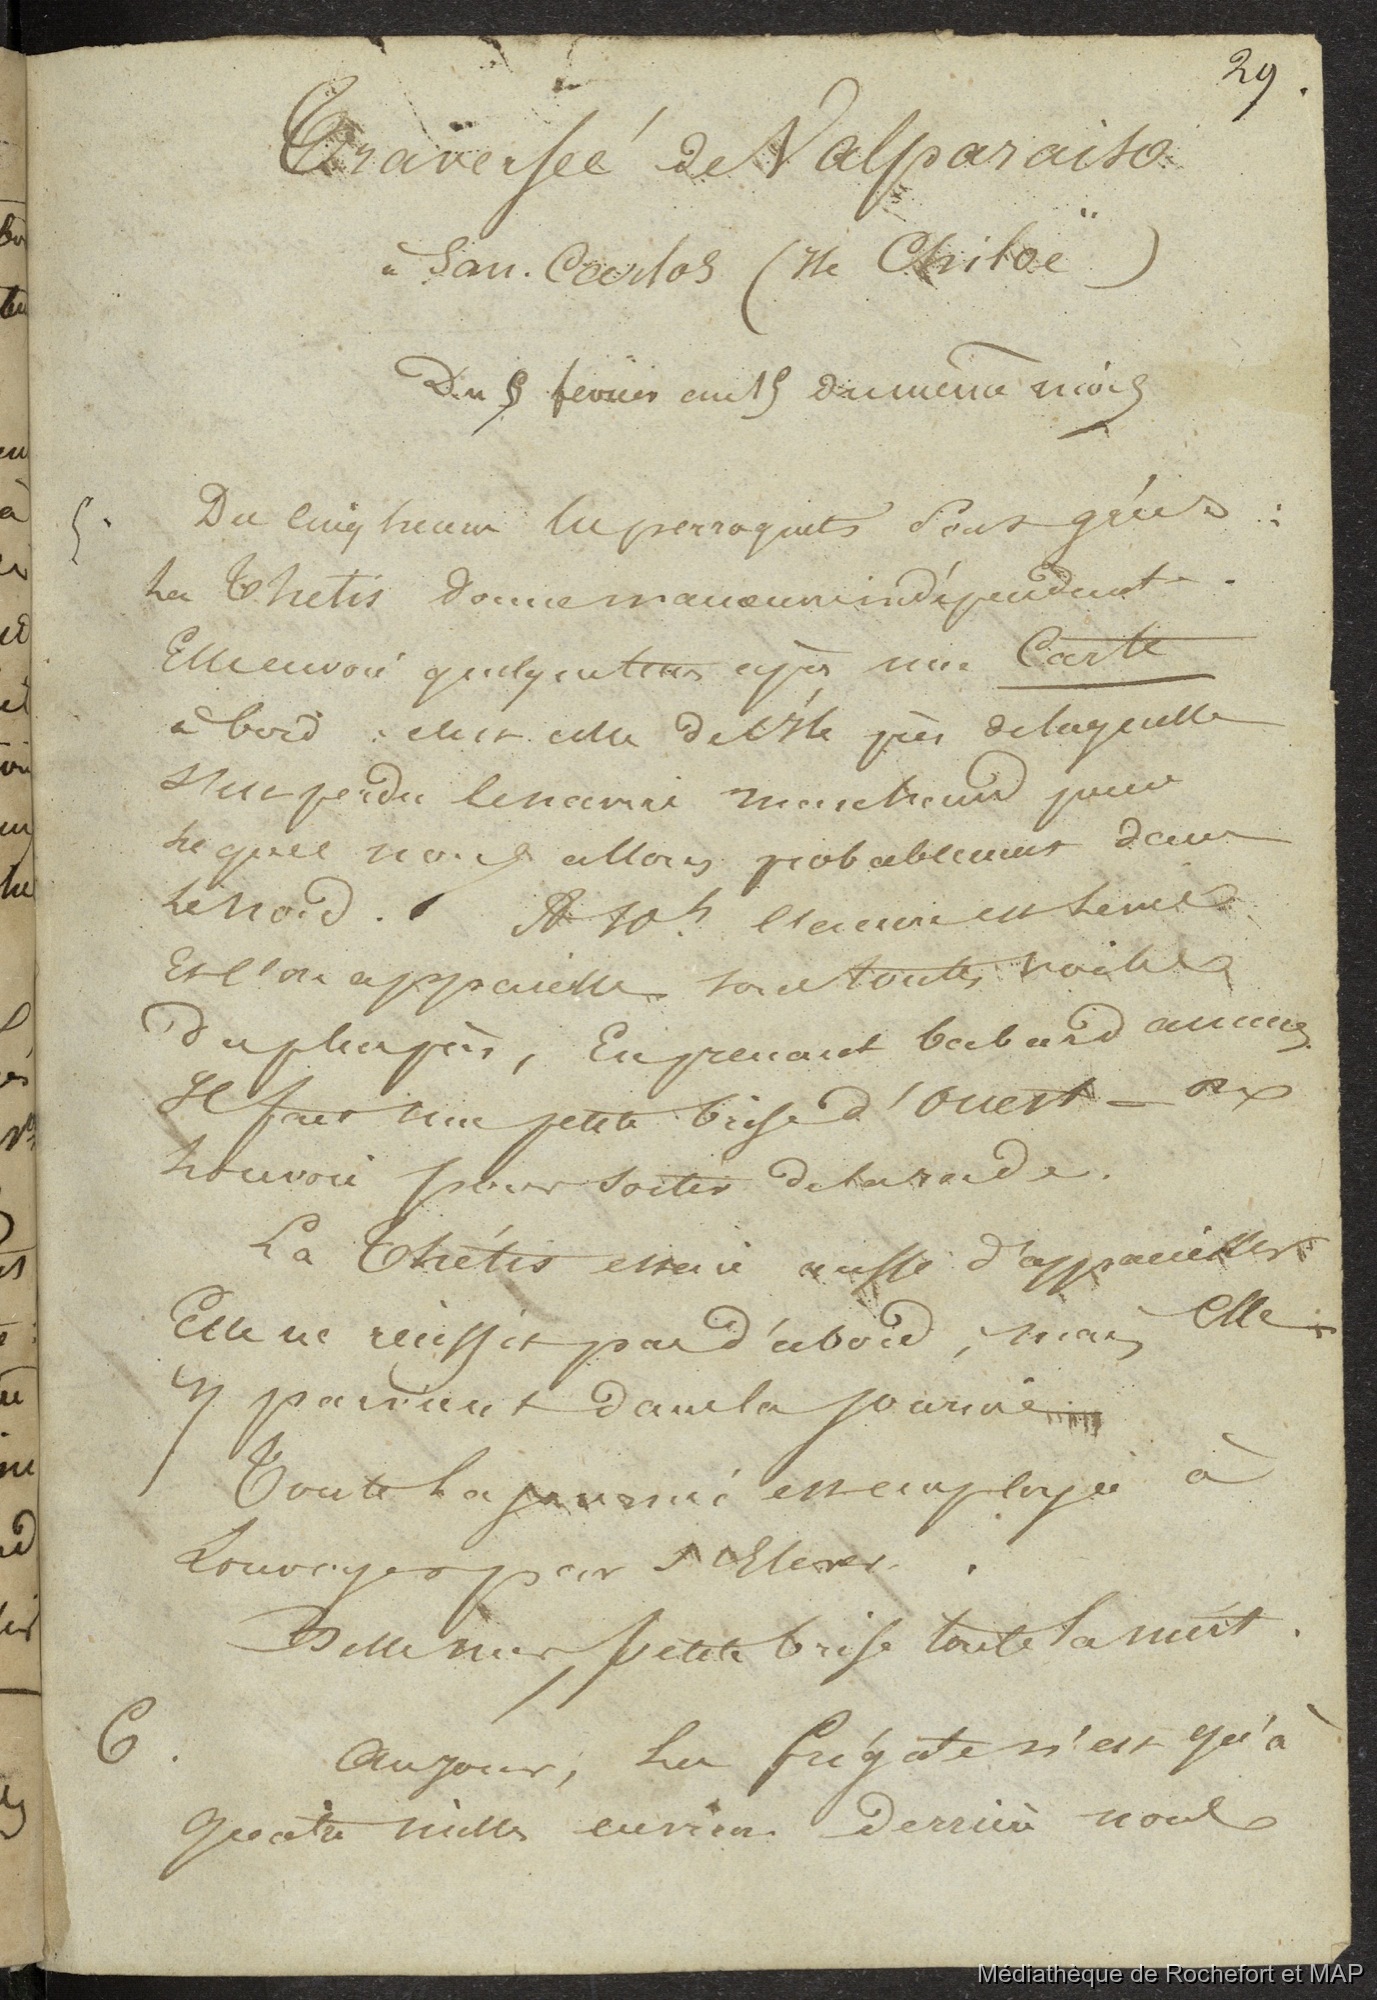 29.
Traversée de Valparaiso
à San. Carlos (Ile Chiloë)
Du 5 fevrier au 15 du même mois
5. Du cinq heures les perroquets sont gréés :
La Thetis donne manœuvre indépendante.
Elle envoie quelque tems après une Carte
à bord : c'est celle de l'Ile près de laquelle
s'est perdu le navire marchand pour
lequel nous allons probablement dans
le nord. A 10h l'ancre est levée
Et l'on appareille sous toutes voiles
Du plus près, En prenant babord amures
Il fait une petite brise d'Ouest — on
louvoie pour sortir de la rade.
La Thétis essaie aussi d'appareiller
Elle ne réussit pas d'abord, mais Elle
y parvient dans la journée
Toute la journée est employée à
Louvoyer pour s'Elever.
Belle mer, petite brise toute la nuit.
6. Au jour, La frégate n'est qu'à
quatre milles environ derrière nous
Médiathèque de Rochefort et MAP